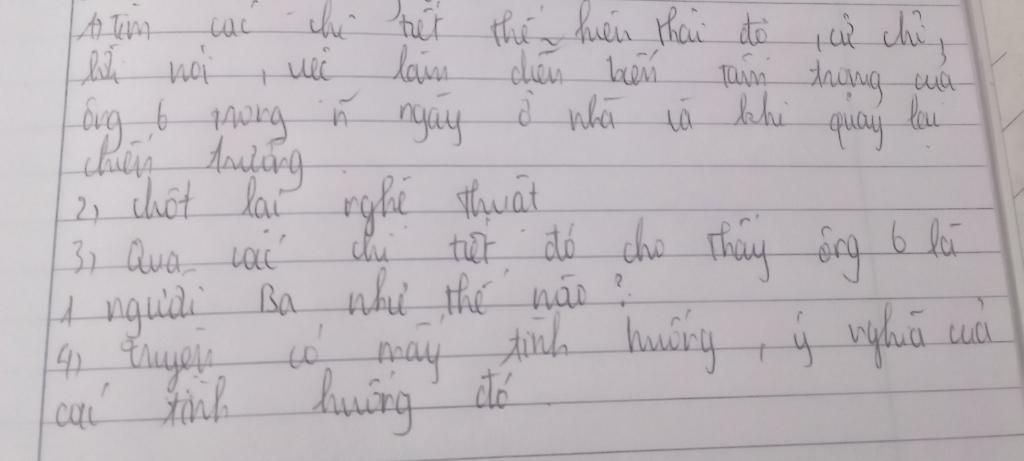 1) Tìm các chi tiết thể hiện thái độ, cử chỉ,
lời nói, việc làm diễn biến tâm trạng của
ông 6 trong ñ ngày ở nhà và khi quay lại
chiến trường
2, chốt lại nghệ thuật
3) Qua các chi tiết đó cho thấy ông 6 là
1 người Ba như thế nào?
4) truyện có mấy tình huống, ý nghĩa của
các tình huống đó.